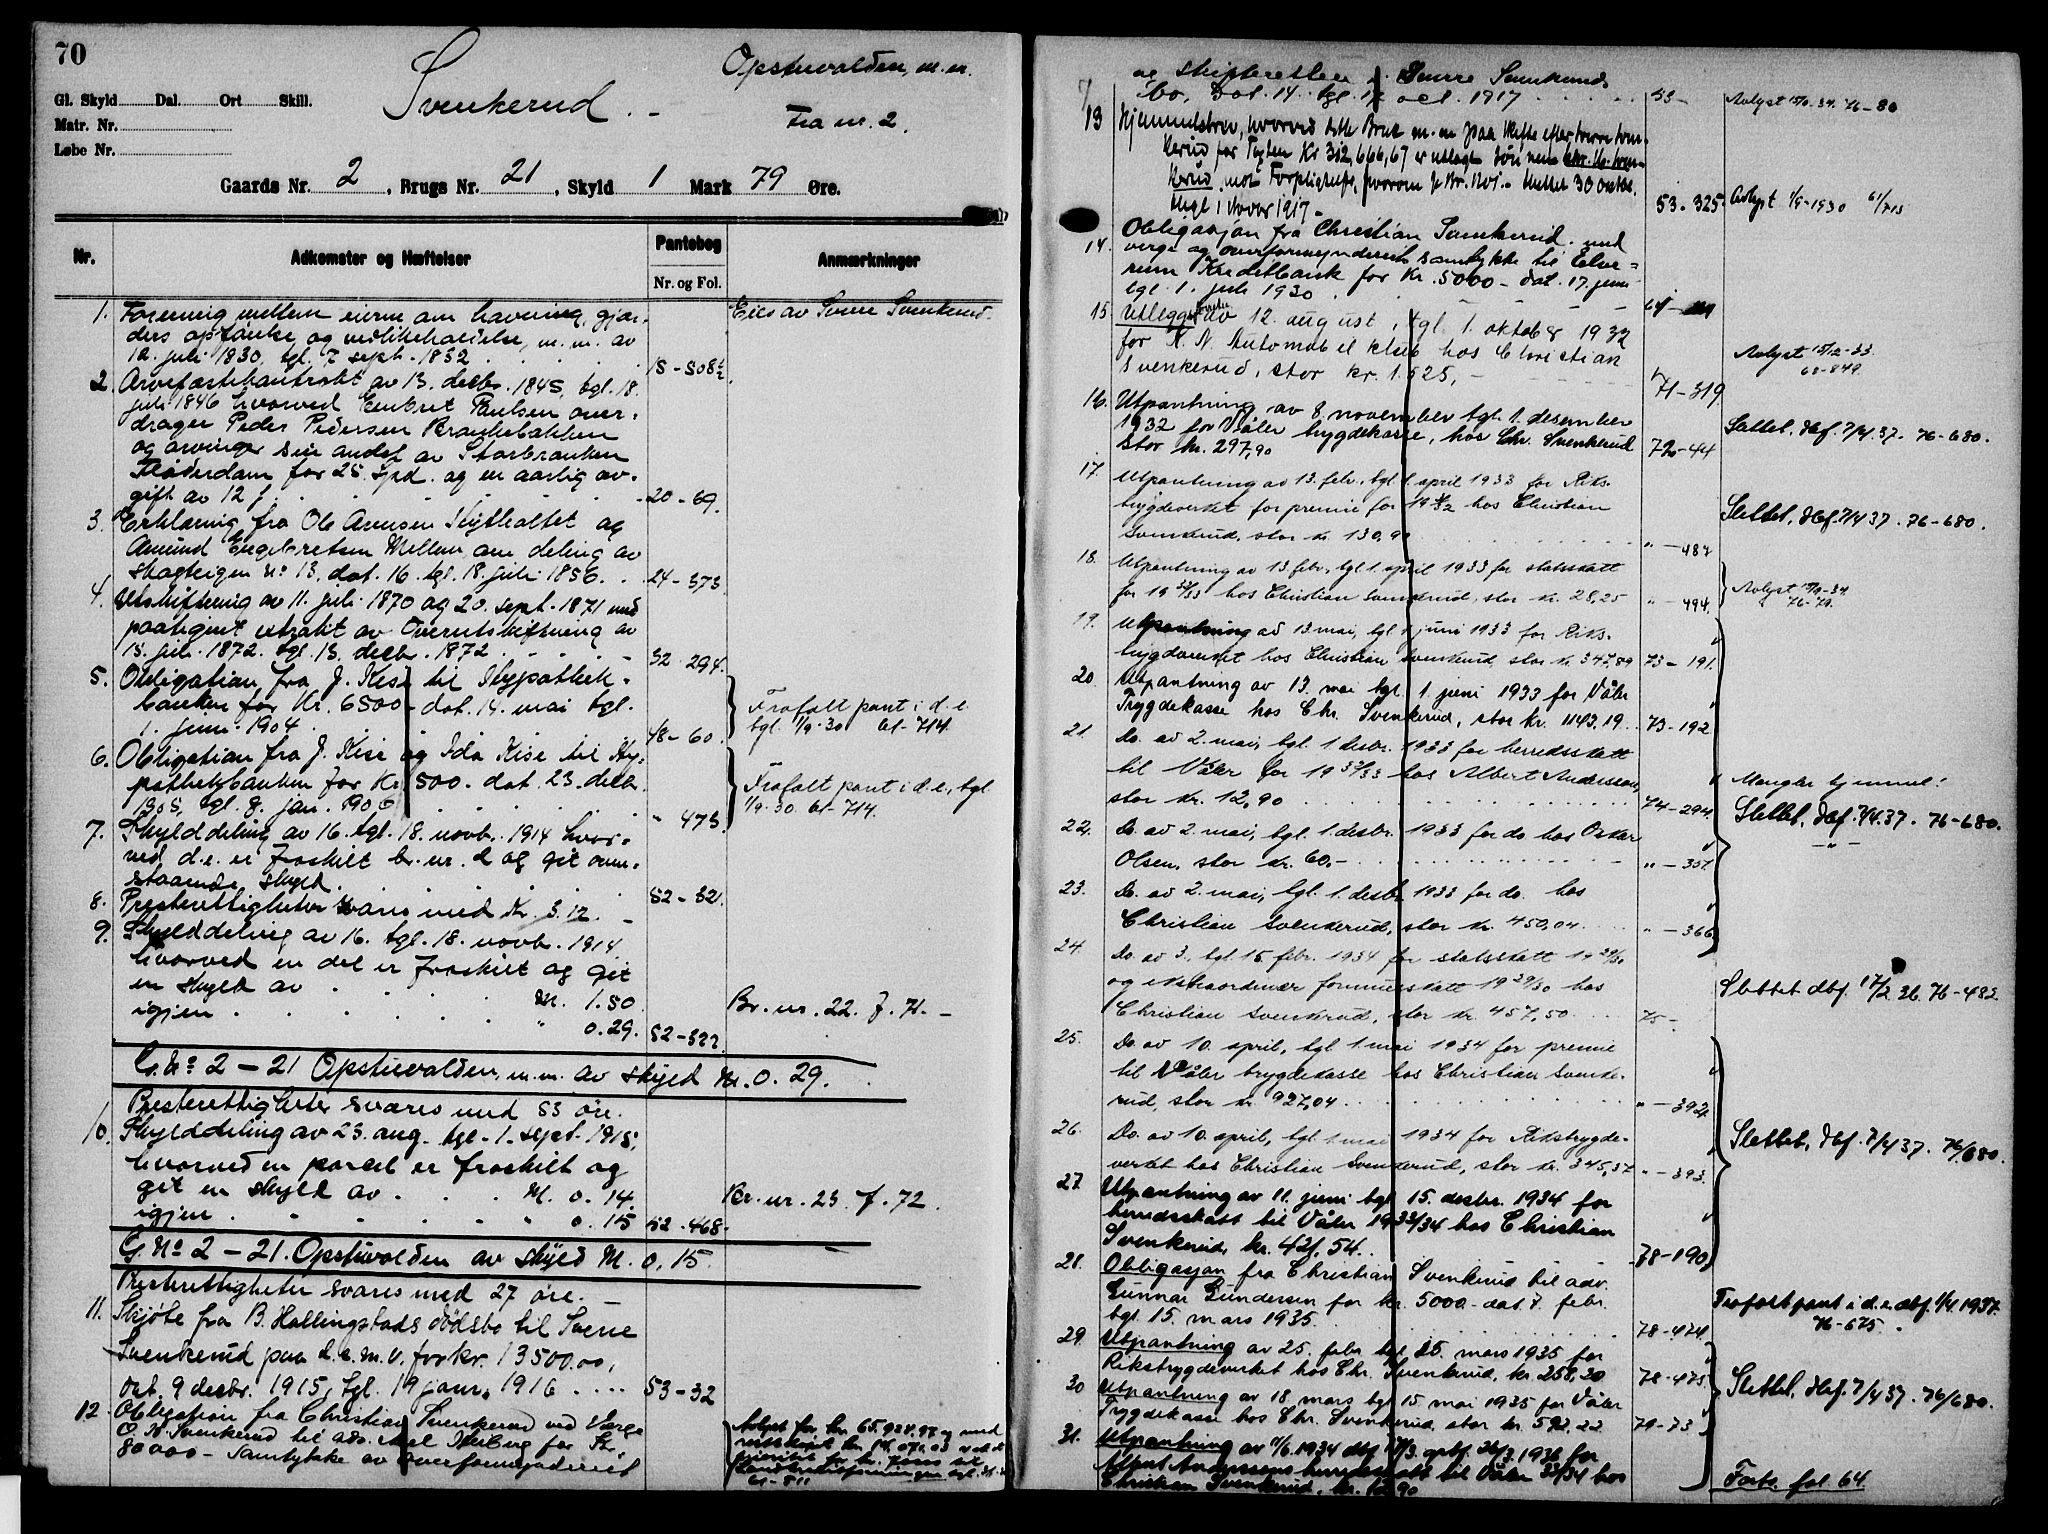 70
Svenkerud.
Opstuvolden, m.m.
Fra nr. 2.
Gl. Skyld Dal. Ort Skill.
Matr. Nr.
Løbe Nr.
Gaards Nr. 2, Brugs Nr. 21, Skyld 1 Mark 79 Øre.
Nr. Adkomster og Hæftelser Pantebog Anmærkninger
Nr. og Fol.
1. Forening mellem eierne om havning, gjær-
ders optænke og vedlikeholdelse, m.m. av
12. juli 1830, tgl. 7 sept. 1832 15-508½
Eies av Sverre Svenkerud.
2. Arvefæstekontrakt av 13. decbr. 1845, tgl. 18.
juli 1846 hvorved Embret Paulsen over-
drager Peder Pedersen Brankebakken
og arvinger sin andel av Storbranken
Fløderdam for 25 spd. og en aarlig av-
gift av 12 f. 20-69.
3. Erklæring fra Ole Arnesen og
Amund Engebretsen Mellem om deling av
skogteigen No 13, dat. 16. tgl. 18. juli 1856. 24-373
4. Utskiftning av 11. juli 1870 og 20. sept. 1871 med
paategnet utrakt av Overutskiftning av
15. juli 1872. tgl. 13. decbr. 1872 32-294.
5. Obligation fra J. Kise til Hypothek-
banken for Kr. 6500 dat. 14. mai tgl.
1. juni 1904 48-60.
Frafalt pant i d.e.
tgl. 1/9-30 61-714.
6. Obligation fra J. Kise og Ida Kise til Hy-
pothekbanken for Kr. 500. dat. 23. decbr.
1905, tgl. 8. jan. 1906 " 473.
Frafalt pant i d.e., tgl.
1/9-30. 61-714.
7. Skylddeling av 16. tgl. 18. novbr. 1914 hvor-
ved d.e. er fraskilt br.nr. 2 og git oven-
staaende skyld. 52-321
8. Presterettigheter svares med Kr. 3.12.
9. Skylddeling av 16. tgl. 18. novbr. 1914.
hvorved en del er fraskilt og git
en skyld av M. 1.50
igjen " 0.29. 52-322.
Br. nr. 22. f. 71.
G. No 2-21 Opstuvolden, m.m. av skyld M. 0.29.
Presterettigheter svares med 53 øre.
10. Skylddeling av 23. aug. tgl. 1. sept. 1915,
hvorved en parcel er fraskilt og
git en skyld av M. 0.14.
igjen " 0.15 52-468.
Br. nr. 23 f. 72.
G. No 2-21. Opstuvolden av skyld M. 0.15.
Presterettigheter svares med 27 øre.
11. Skjøte fra B. Hallingstads dødsbo til Sverre
Svenkerud paa d.e. m.v. for kr. 13500.00,
dat. 9 desbr. 1915, tgl. 19 jan. 1916 53-32
12 Obligation fra Christian Svenkerud ved Verge
O. N. Svenkerud til adv. for Kr.
80000 - Samtykke av overformynderiet
og Skifteretten i Sverre Svenkeruds
bo, Dat. 14. tgl. 17 oct. 1917 53-
Avlyst 15/9.34. 76-80
13 Hjemmelsbrev, hvorved dette Bruk m.m. paa skifte efter Sverre Sven-
kerud for Taxten Kr 312,666,67 er utlagt Sønnen Chr. Sven-
kerud, mot Forpligtelse, hvorom f Br. No 1. - Utstedt 30 octbr.
tingl 1 Novbr 1917. 53-325.
Avlyst 1/9-1930 61/713
14. Obligasjon fra Christian Svenkerud. med
verge og overformynderiets samtykke til Elve-
rum Kreditbank for Kr. 5000 - dat. 17. juni
tgl. 1. juli 1930.
15 Utlegg av 12. august, tgl. 1. oktober 1932
for K. N. Automobilklub hos Christian
Svenkerud, stor kr. 1.525,- 71-319
Avlyst 15/12-33.
68-849.
16. Utpantning av 8. november tgl. 1. desember
1932 for Våler trygdekasse, hos Chr. Svenkerud
stor kr. 297,90 72-44
Slettet, dbf. 7/4.37. 76-680.
17. Utpantning av 13. febr. tgl. 1. april 1933 for Riks-
trygdeverket for premie for 1931/32 hos Christian
Svenkerud, stor kr. 130,90 " - 487
Slettet, dbf. 7/4 37. 76-680.
18. Utpantning av 13 febr. tgl. 1. april 1933 for statsskatt
for 1932/33 hos Christian Svenkerud, stor kr. 28,25 " - 494
Avlyst 15/9-34
76-79.
19. Utpantning av 13 mai, tgl 1 juni 1933 for Riks-
trygdeverket hos Christian Svenkerud stor kr 347,89 73-191.
20. Utpantning av 13. mai tgl. 1. juni 1933 for Våler
Trygdekasse hos Chr. Svenkerud, stor kr. 1143.19 73-192
21. Do. av 2. mai, tgl. 1. desbr. 1933 for herredsskatt
til Våler for 1932/33 hos Albert Anderssen,
stor kr. 12,90 74-294
Mangler hjemmel!
Slettet, dbf. 7/4.37. 76-680.
22. Do. av 2. mai, tgl. 1. desbr. 1933 for do. hos Oskar
Olsen, stor kr. 60.- " - 351.
- " -
23. Do. av 2. mai, tgl. 1. desbr. 1933 for do. hos
Christian Svenkerud, stor kr. 450,04 " - 366
24. Do. av 3. tgl. 15 febr. 1934 for statsskatt 1929/30
og ekstraordinær formuesskatt 1929/30 hos
Christian Svenkerud, stor kr. 457,50 75-
Slettet dbf. 17/2 36. 76-482.
25. Do. av 10. april, tgl. 1. mai 1934 for premie
til Våler trygdekasse hos Christian Svenke-
rud, stor kr 927,04 " - 392
26. Do. av 10. april, tgl. 1 mai 1934 for Rikstrygde-
verket hos Christian Svenkerud, stor kr. 345,37 " - 393.
Slettet, dbf. 7/4 37. 76/680.
27. Utpantning av 11. juni tgl. 15. desbr. 1934 for
herredsskatt til Våler 1933/34 hos Christian
Svenkerud, kr. 421,54. 78-190
28. Obligasjon fra Christian Svenkerud til adv.
Gunnar Gundersen for kr. 5000.- dat. 7. febr.
tgl. 15. mars 1935. 78-474
Frafalt pant i d.e. dbf. 1/4 1937.
76-675.
29. Utpantning av 25. febr. tgl. 15. mars 1935 for
Rikstrygdeverket hos Chr. Svenkerud, kr. 258,20 78-475
30 Utpantning av 18. mars tgl. 15 mai 1935 for Våler
Trygdekasse hos Chr. Svenkerud, stor kr. 592,22 79-73
Slettet, dbf. 7/4 37. 76/680.
31. Utpantning av 11/6.1934 for
Albert Anderssens herredsskatt til Våler 33/34 hos
Christian Svenkerud, kr.
Forts. fol. 64.